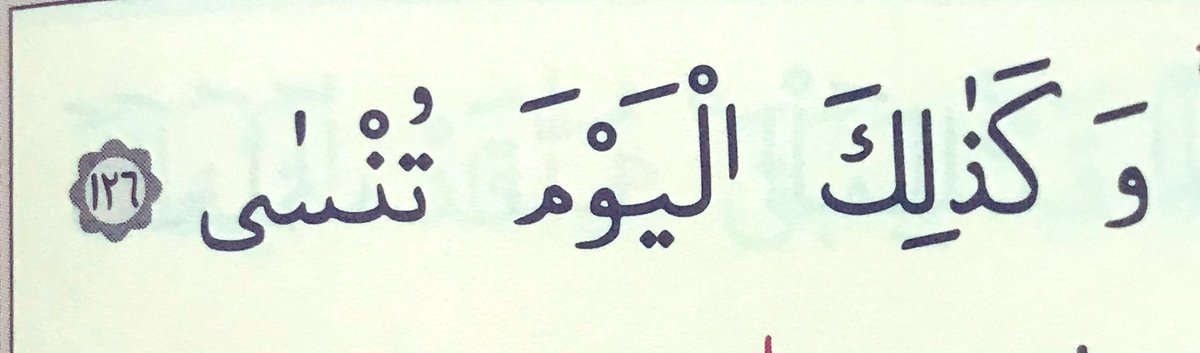 وَ كَذٰلِكَ الْيَوْمَ تُنْسٰى ١٢٦